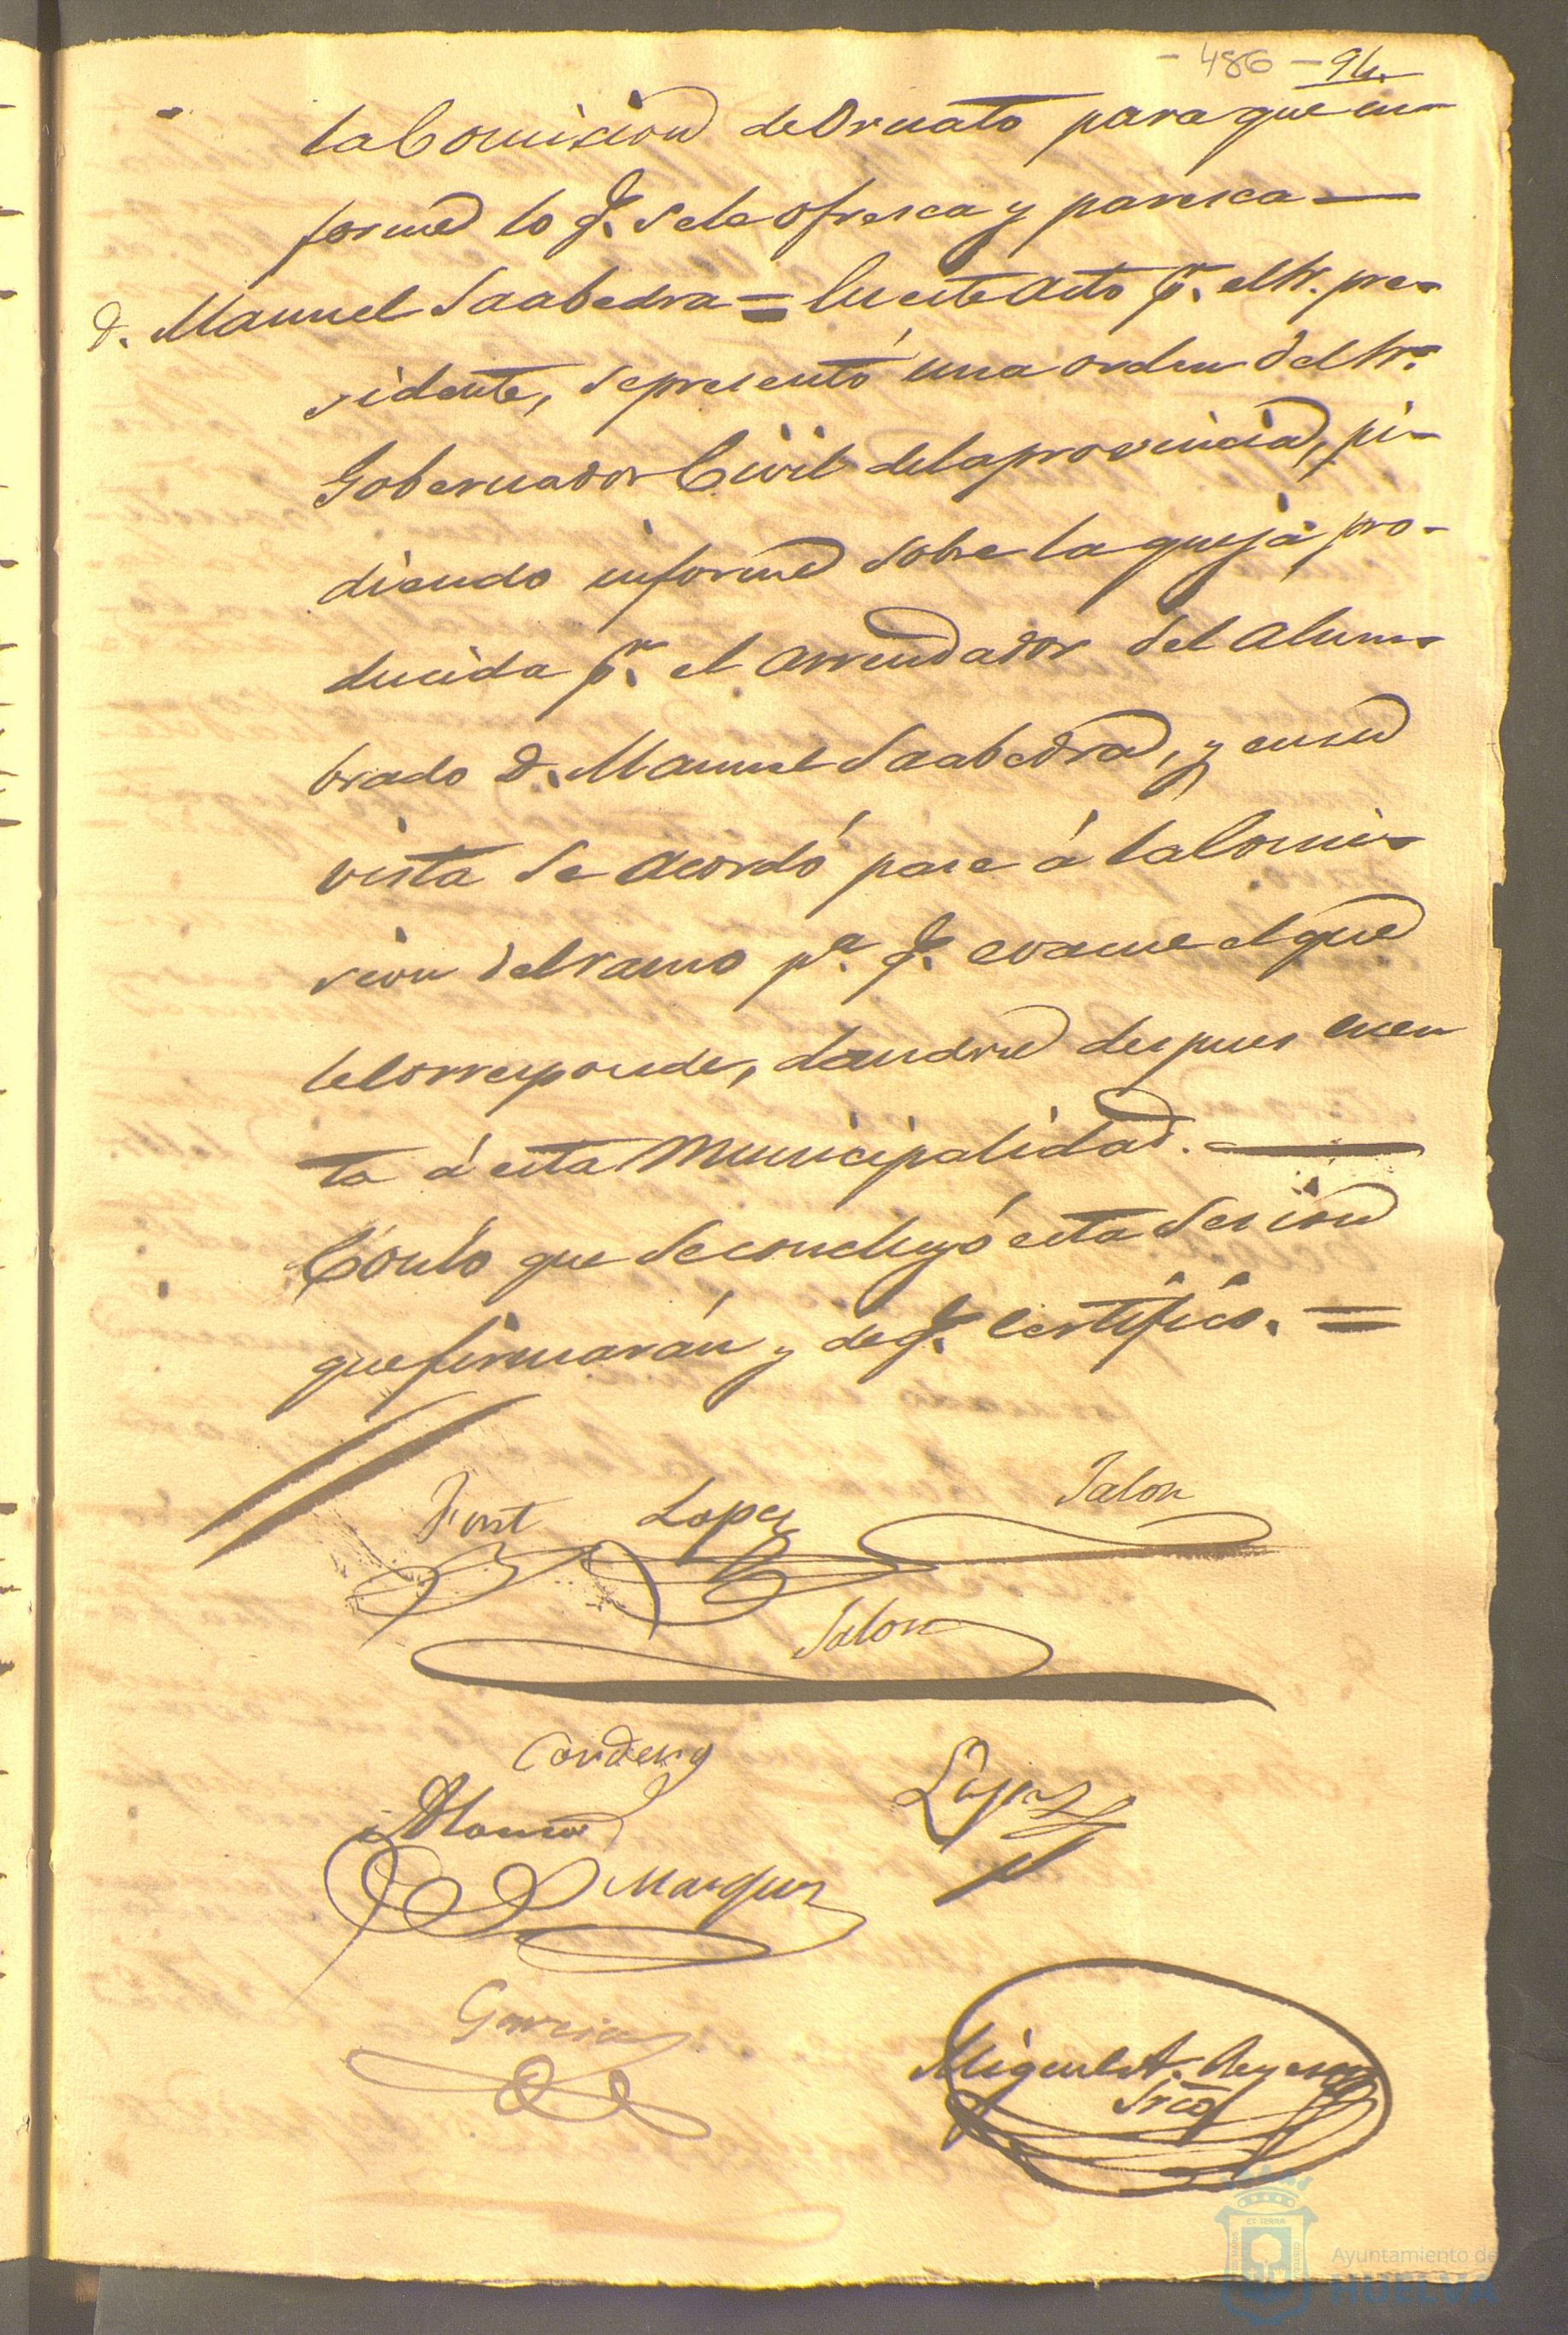 - 486 - 94.
la Comision de Ornato para que in-
forme lo q.e se le ofresca y paresca —
D. Manuel Saabedra = En este acto p.r el Sr. pre-
sidente, se presentó una orden del Sr.
Gobernador Civil de la provincia, pi-
diendo informe sobre la queja pro-
ducida p.r el arrendador del alum-
brado D. Manuel Saabedra, y en su
vista se acordó pase á la Comi-
sion del ramo p.a q.e evacue el que
le corresponde, dandose despues cuen
ta á esta Municipalidad. —
Con lo que se concluyó esta Sesion
que firmarán y de q.e certifico. =
Font Lopez Jalon
Jalon
Cordero
Alonso Lopez
Marquez
Garcia
Miguel A. Reyes
Srio
Ayuntamiento de
HUELVA